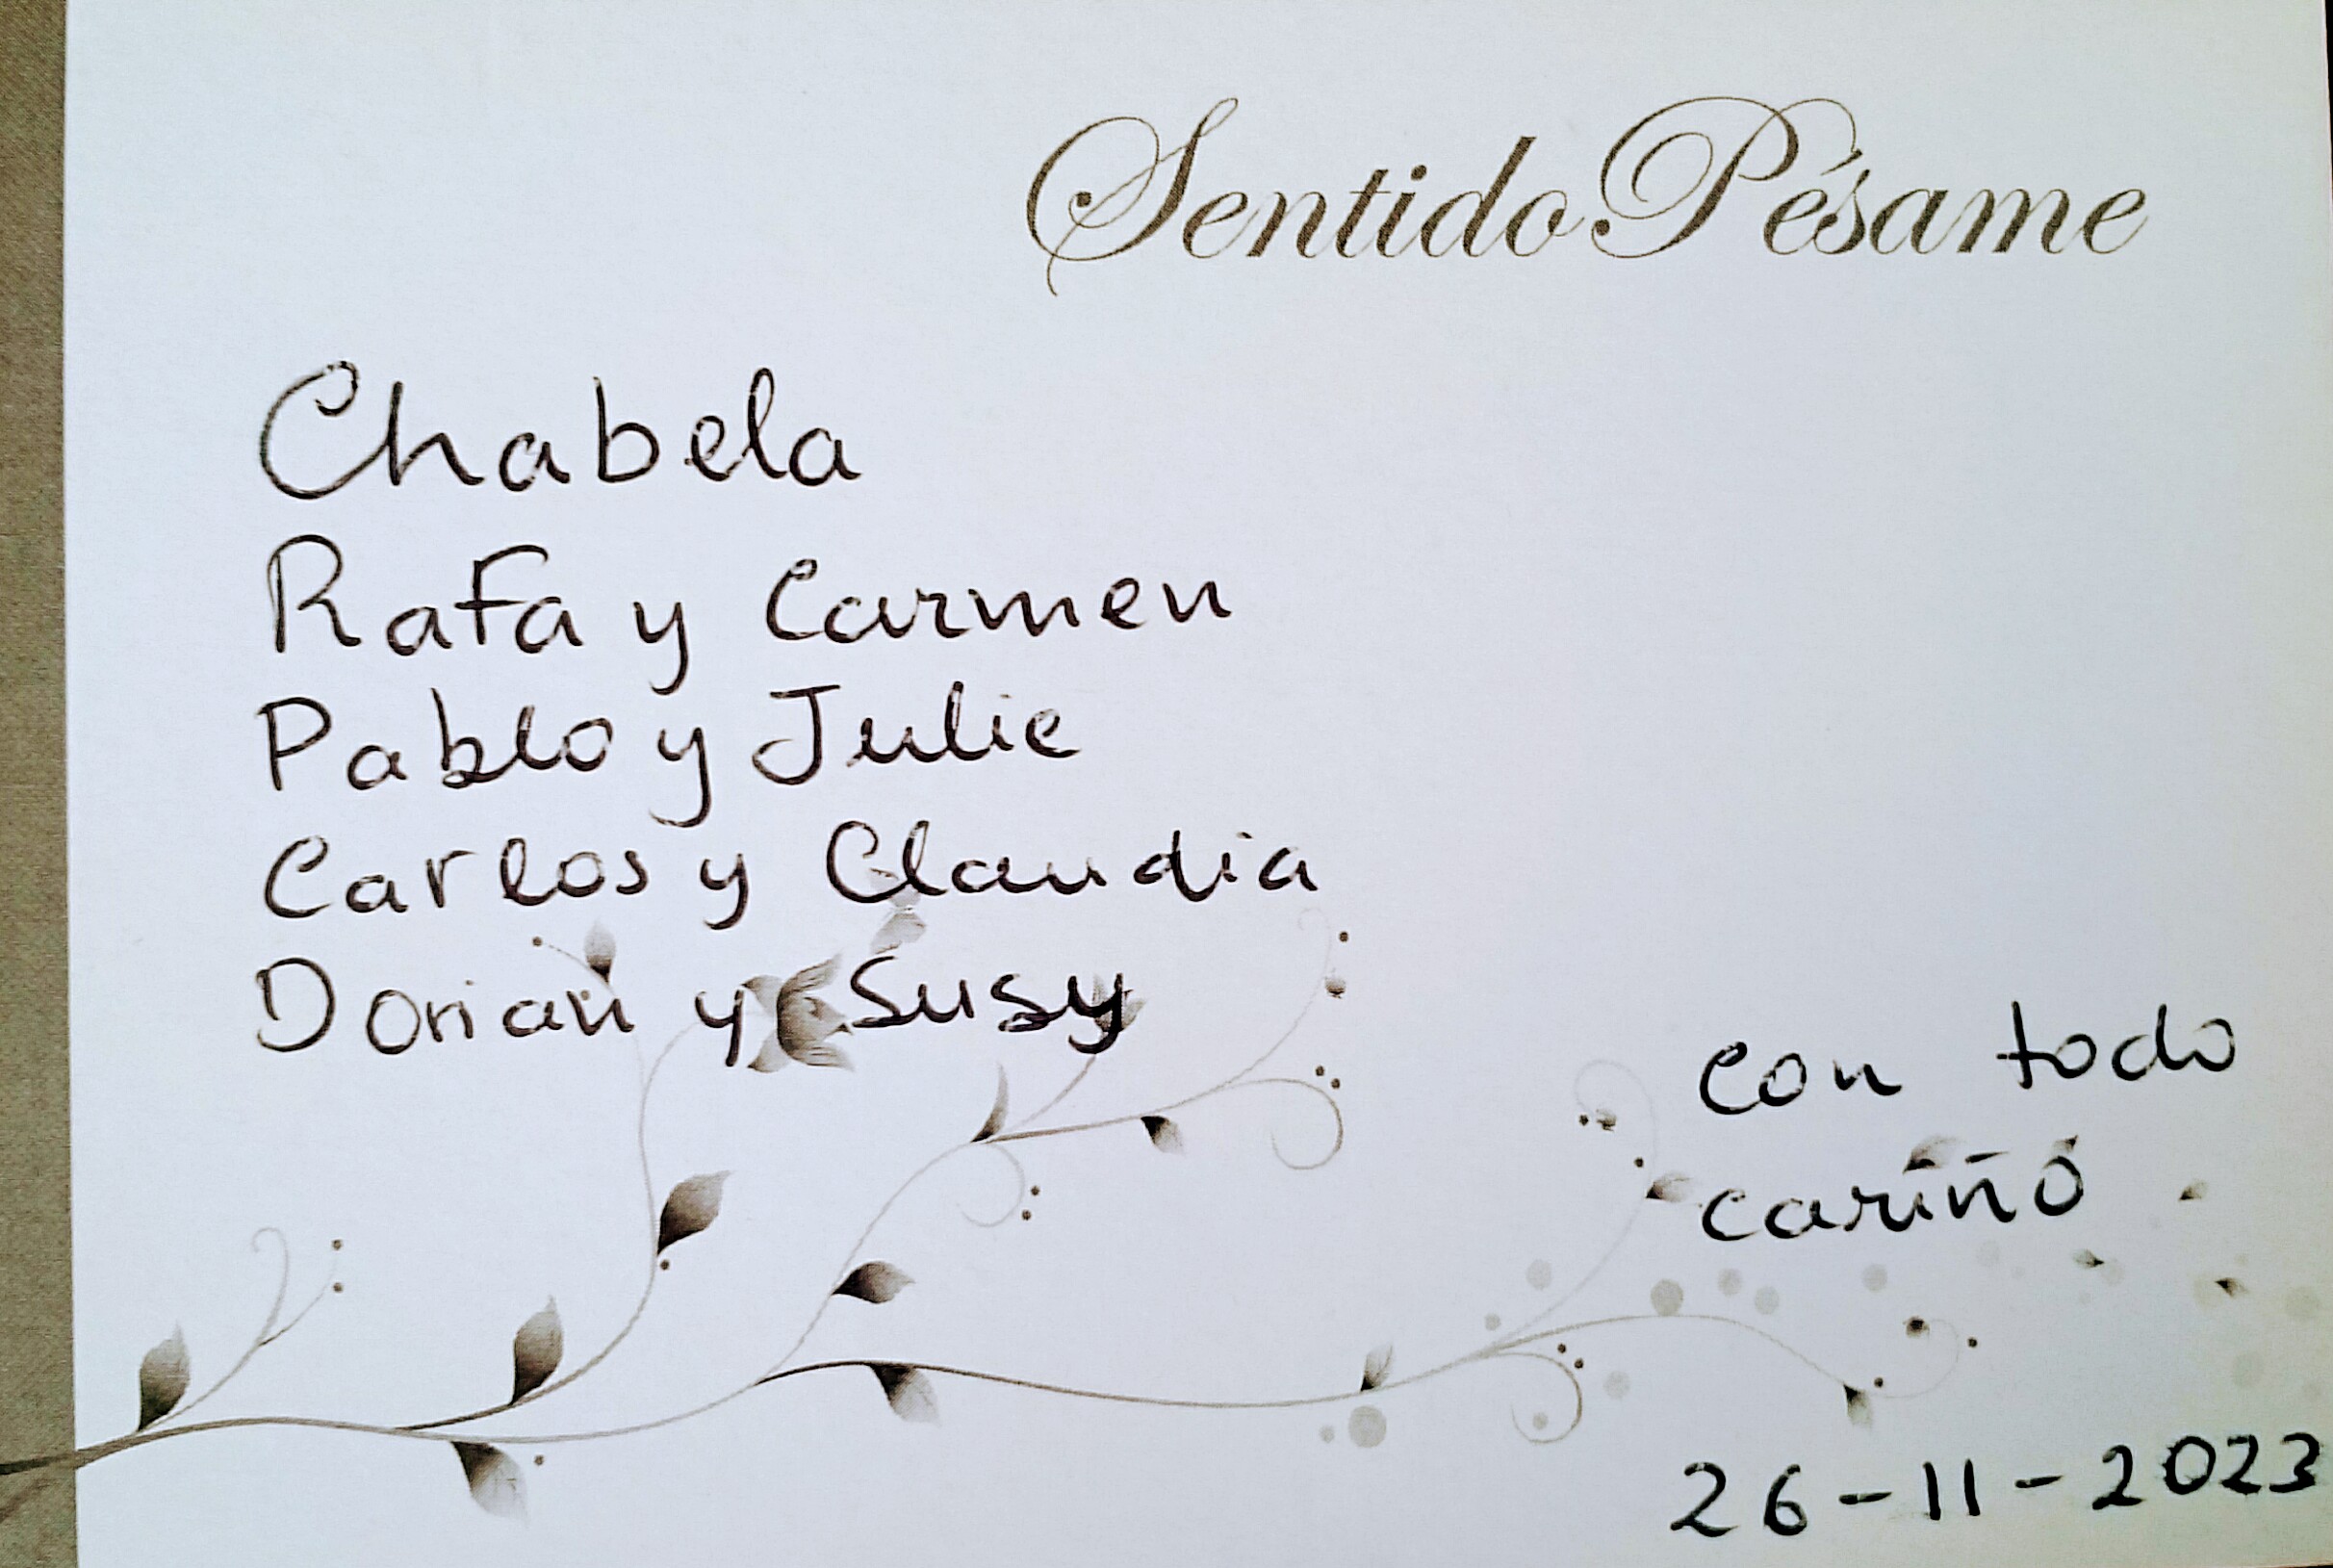 Sentido Pésame
Chabela
Rafa y Carmen
Pablo y Julie
Carlos y Claudia
Dorian y Susy
con todo
cariño
26-11-2023